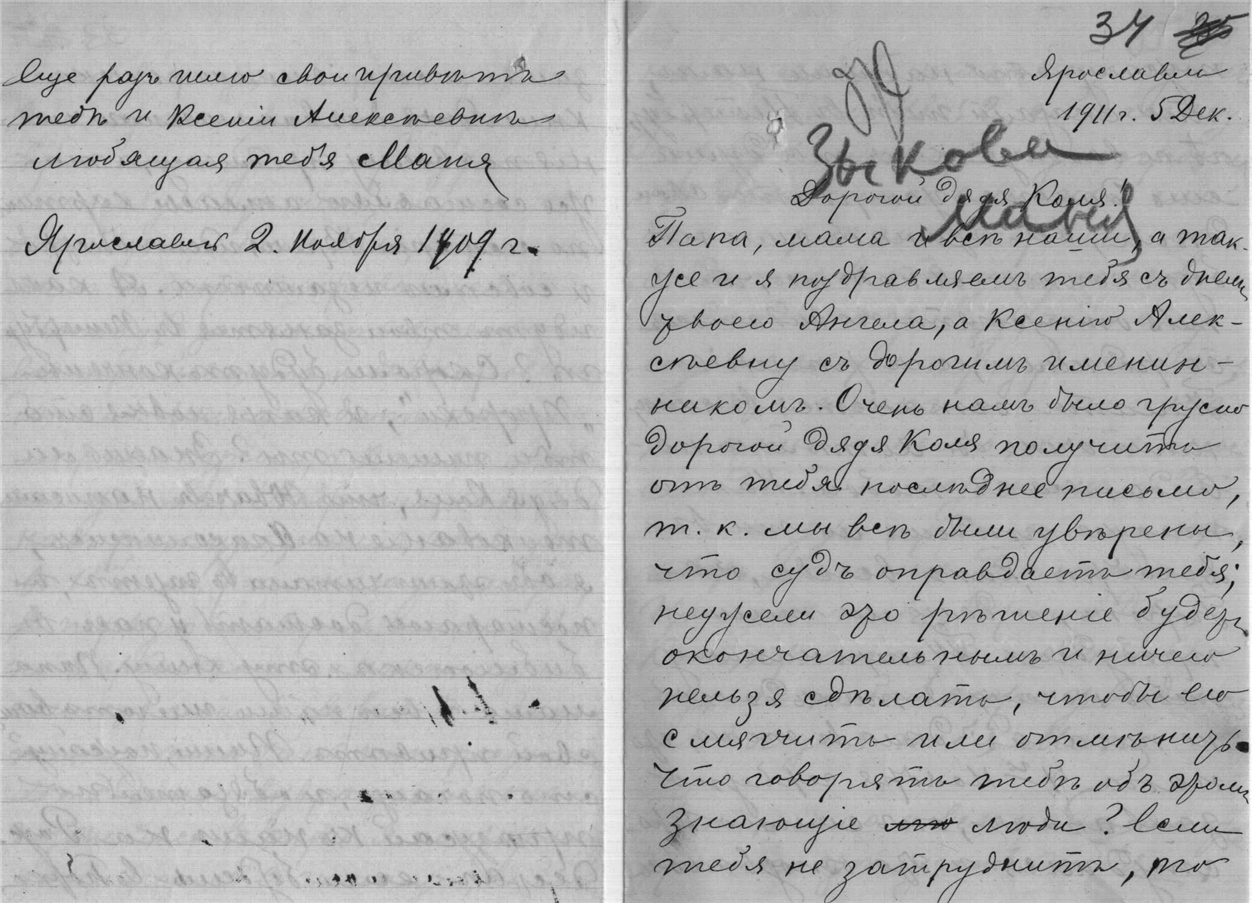 Еще разъ шлю свои приветъ
тебѣ и Ксеніи Алексѣевнѣ
любящая тебя Маня
Ярославль 2. Ноября 1909 г.
34
Ярославль
1911 г. 5 Дек.
Зыкова
Маня
Дорогой дядя Коля!
Папа, мама и всѣ наши, а так-
же и я поздравляемъ тебя съ днемъ
твоего Ангела, а Ксенію Алек-
сѣевну съ дорогимъ именин-
никомъ. Очень намъ было грусно
дорогой дядя Коля получить
отъ тебя послѣднее письмо,
т. к. мы всѣ были увѣрены,
что судъ оправдаетъ тебя;
неужели это рѣшеніе будетъ
окончательнымъ и ничего
нельзя сдѣлать, чтобы его
смягчить или отмѣнить.
Что говорятъ тебѣ объ этомъ
знающіе люди? Если
тебя не затруднитъ, то